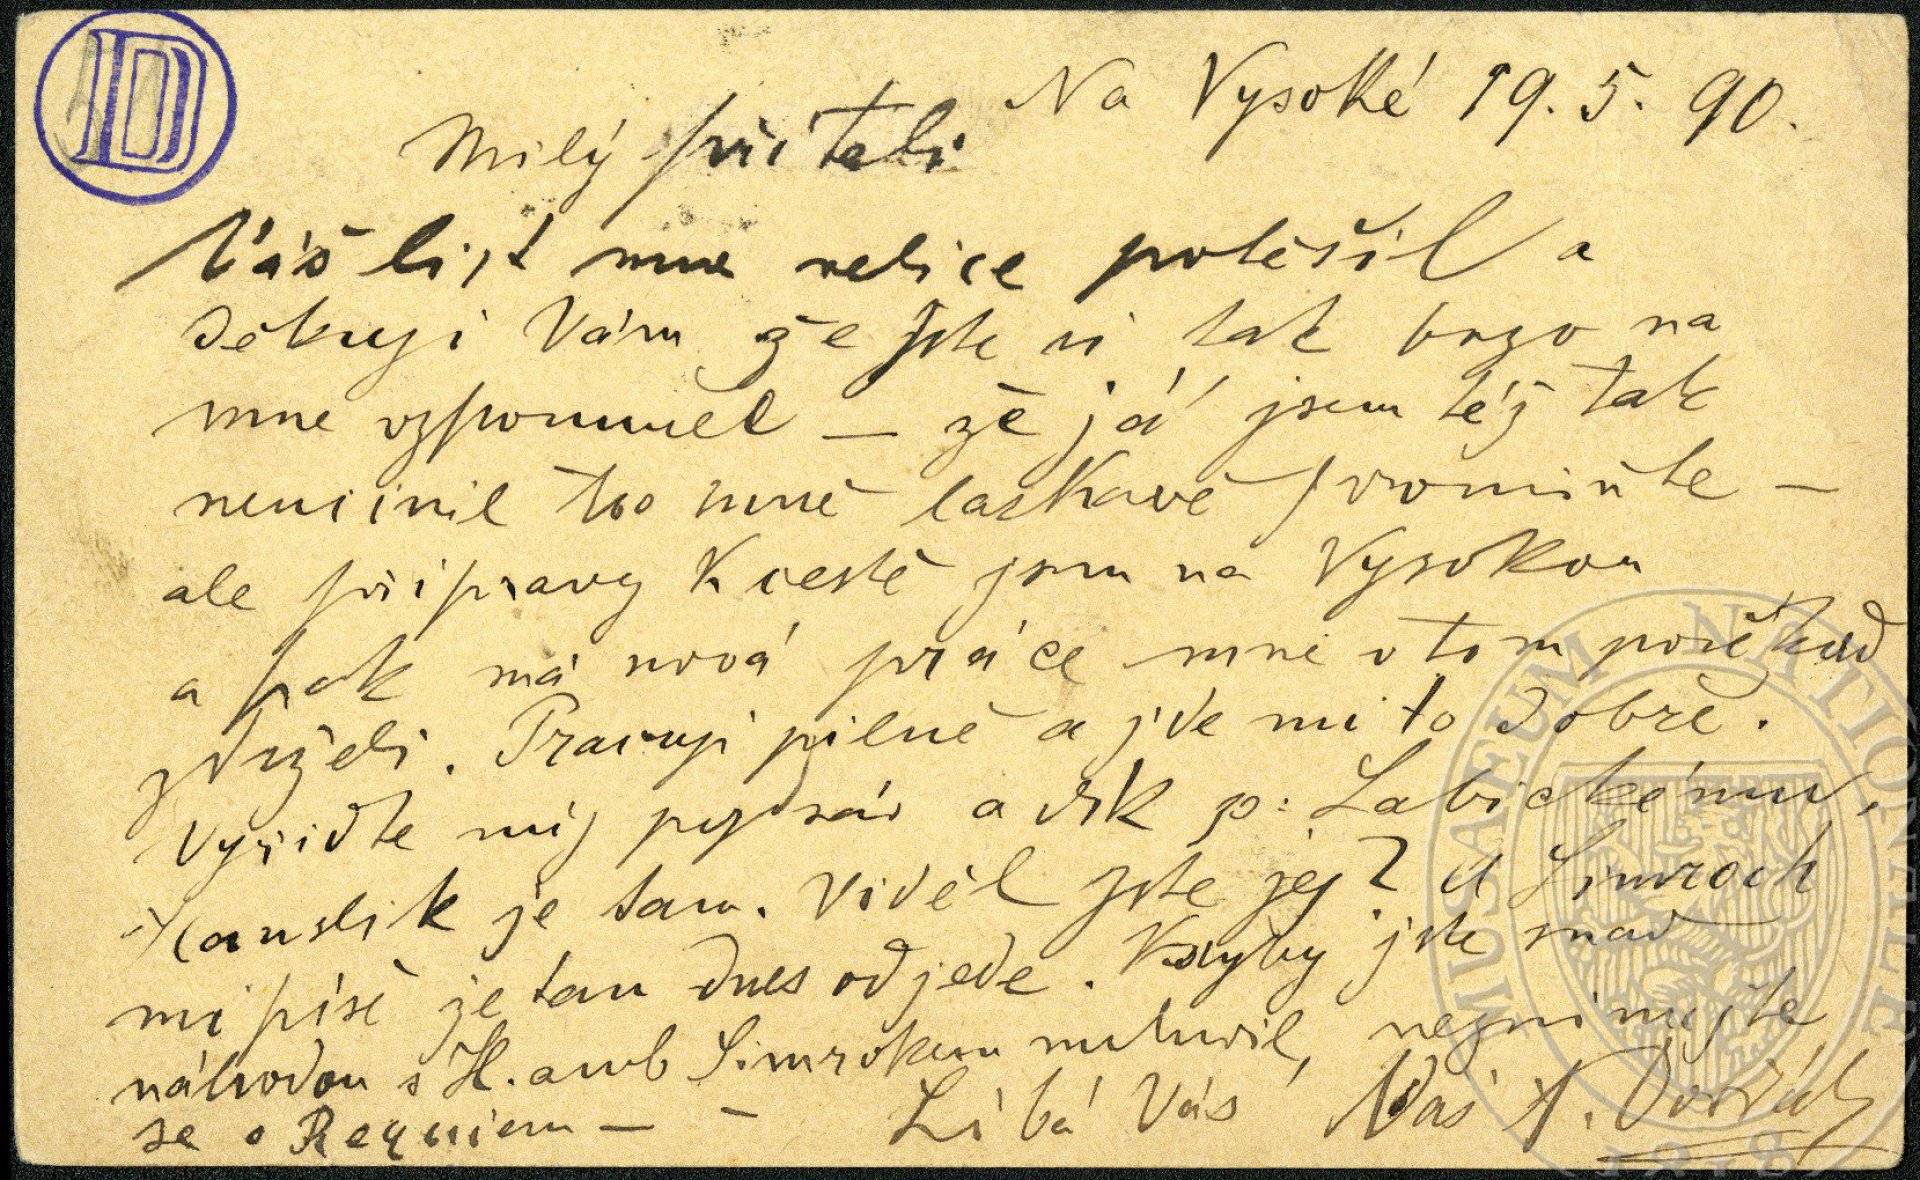 D
Na Vysoké 19. 5. 90.
Milý příteli
Váš list mne velice potěšil a
děkuji Vám že jste si tak brzo na
mne vzpomněl — že já jsem též tak
neučinil to mně laskavě promiňte —
ale přípravy k cestě jsem na Vysokou
a pak má nová práce mne v tom poněkud
zdrželi. Pracuji pilně a jde mi to dobře.
Vyřiďte můj pozdrav a dík p: Labickému,
Hanslik je tam. Viděl jste jej? a Simrock
mi píše že tam dnes odjede. Kdyby jste snad
náhodou s H. aneb Simrokem mluvil, nezmiňujte
se o Requiem — —
Líbá Vás Váš A. Dvořák
MUSAEUM NATIONALE
1818